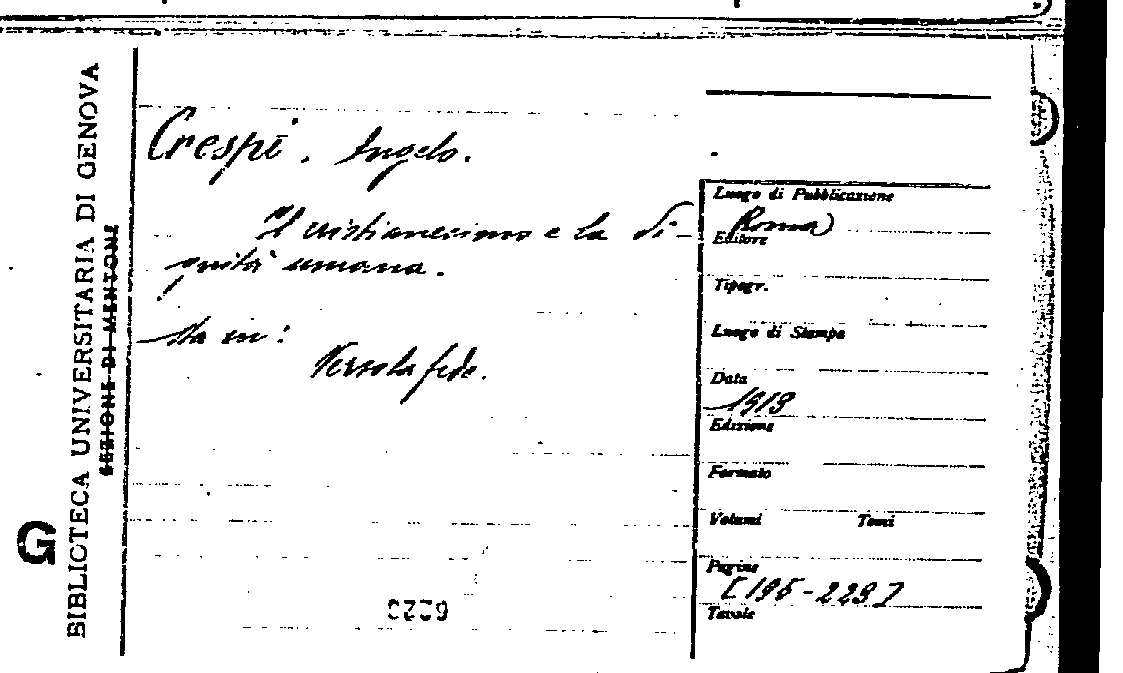 G
BIBLIOTECA UNIVERSITARIA DI GENOVA
SEZIONE DI MENTONE
Crespi, Angelo.
Il cristianesimo e la di-
gnità umana.
Sta in:
Verso la fede.
Luogo di Pubblicazione
Roma
Editore
Tipogr.
Luogo di Stampa
Data
1913
Edizione
Formato
Volumi Tomi
Pagine
Tavole